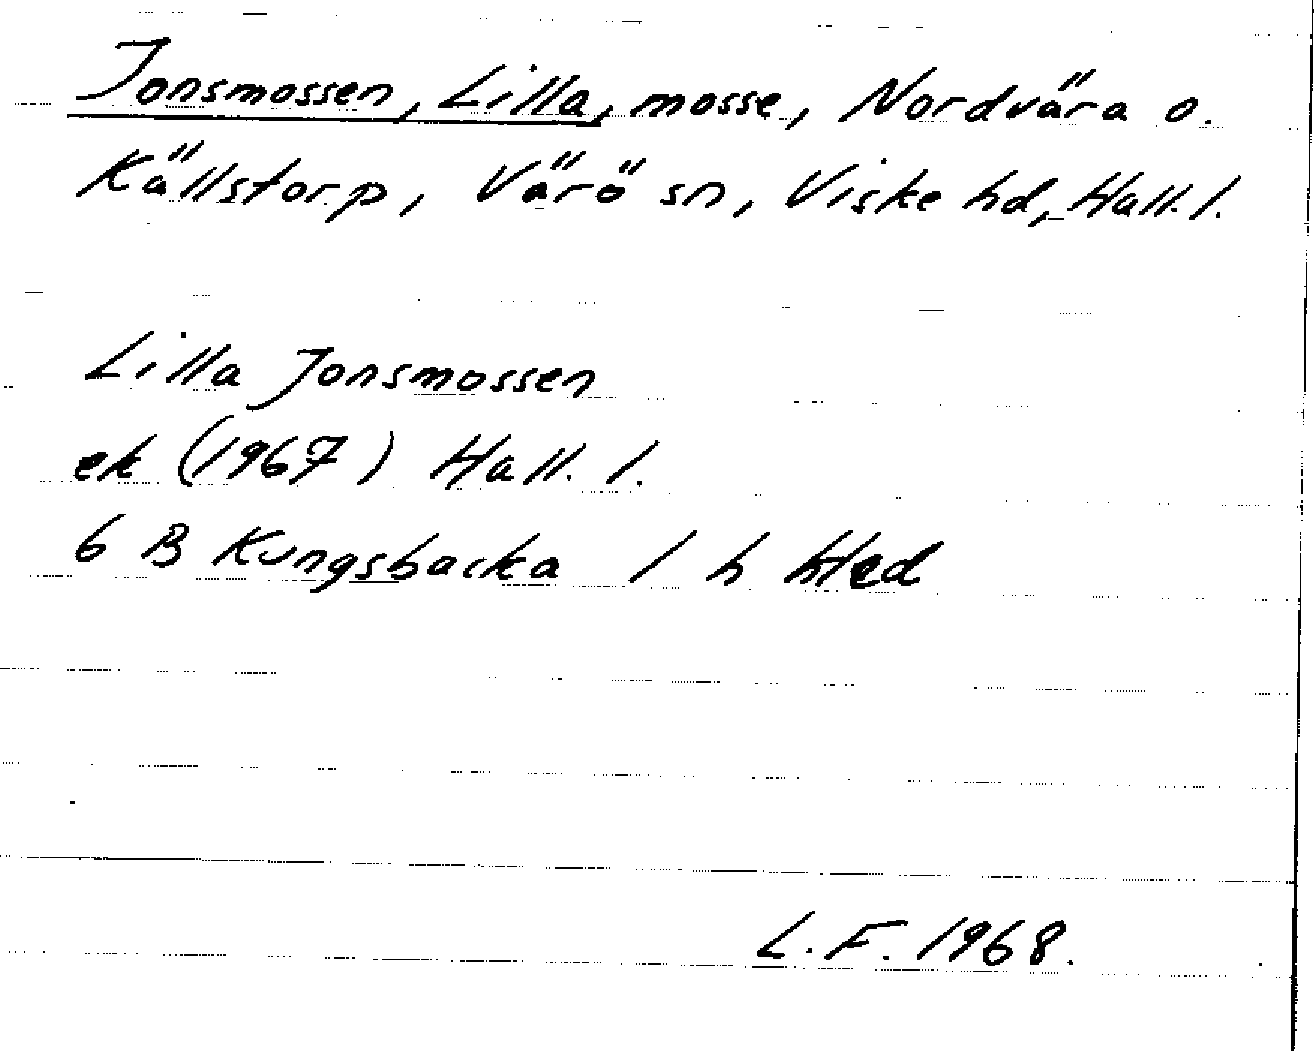 Jonsmossen, Lilla, mosse, Nordvära o.
Källstorp, Värö sn, Viske hd, Hall. l.
Lilla Jonsmossen
ek (1967) Hall. l.
6 B Kungsbacka 1 h
L. F. 1968.